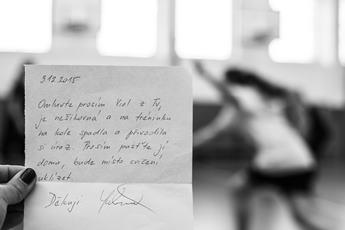 3.12.2015
Omluvte prosím Viol z TV,
je nešikovná a na tréninku
na kole spadla a přivodila
si úraz. Prosím pusťte ji
domů, bude místo cvičení
uklízet.
Děkuji